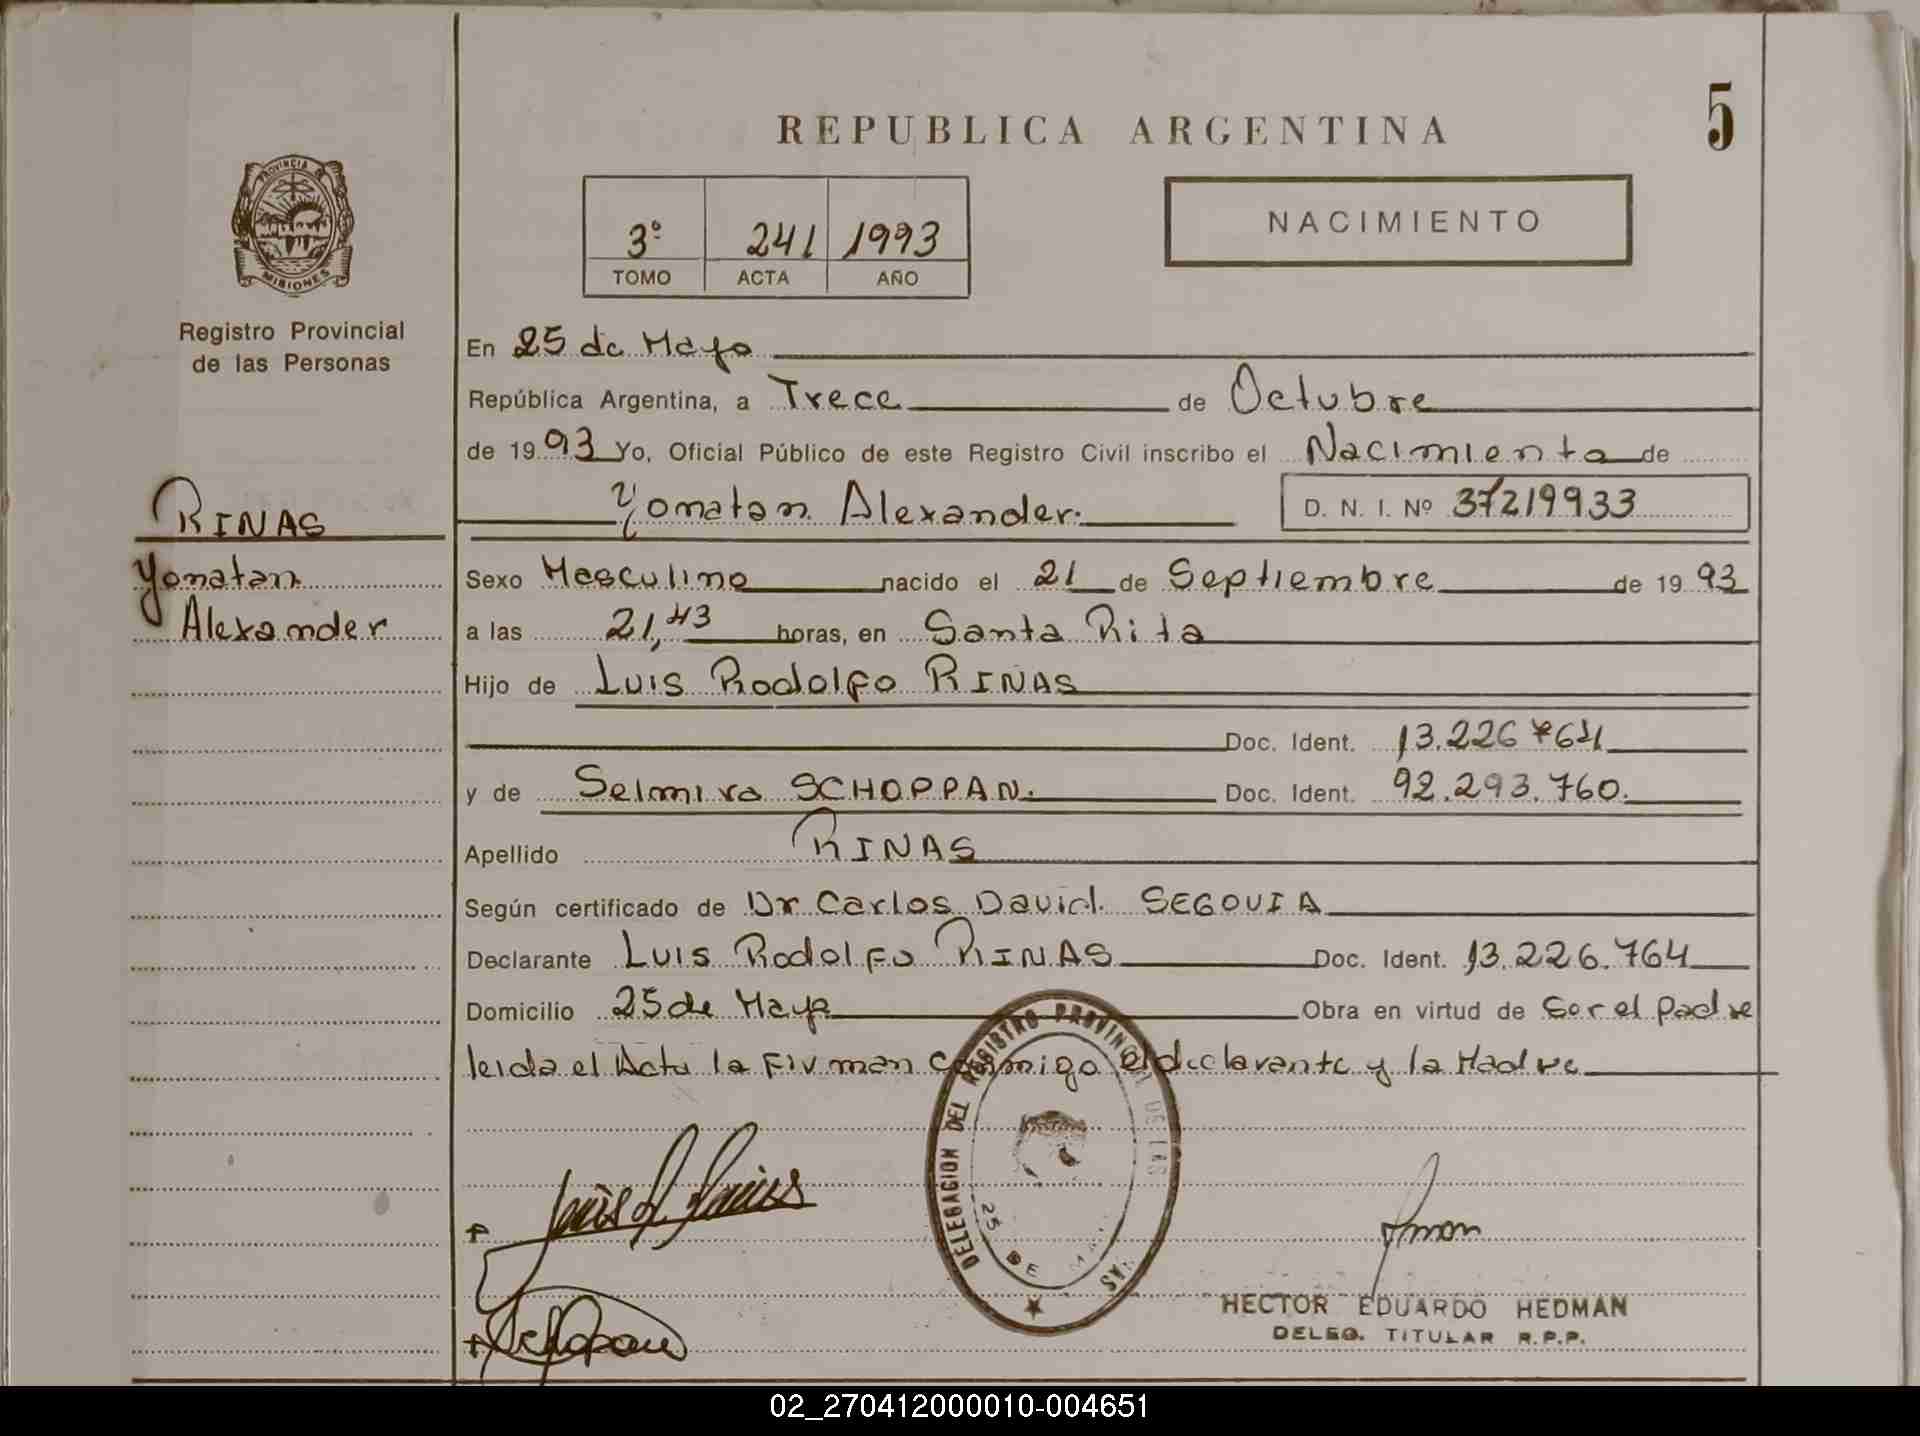 REPUBLICA ARGENTINA
5
PROVINCIA
MISIONES
Registro Provincial
de las Personas
3º 241 1993
TOMO ACTA AÑO
NACIMIENTO
En 25 de Mayo
República Argentina, a Trece de Octubre
de 1993 Yo, Oficial Público de este Registro Civil inscribo el Nacimiento de
Yonatan Alexander. D. N. I. Nº 37219933
RINAS
Yonatan
Alexander
Sexo Masculino nacido el 21 de Septiembre de 1993
a las 21,43 horas, en Santa Rita
Hijo de Luis Rodolfo RINAS
Doc. Ident. 13.226 764
y de Selmira SCHOPPAN. Doc. Ident. 92.293.760.
Apellido RINAS
Según certificado de Dr Carlos David SEGOVIA
Declarante Luis Rodolfo RINAS Doc. Ident. 13.226.764
Domicilio 25 de Mayo Obra en virtud de Ser el padre
leida el Acta la Firman conmigo el declarante y la Madre
DELEGACION DEL REGISTRO PROVINCIAL DE LAS
25 DE
HECTOR EDUARDO HEDMAN
DELEG. TITULAR R.P.P.
02_270412000010-004651